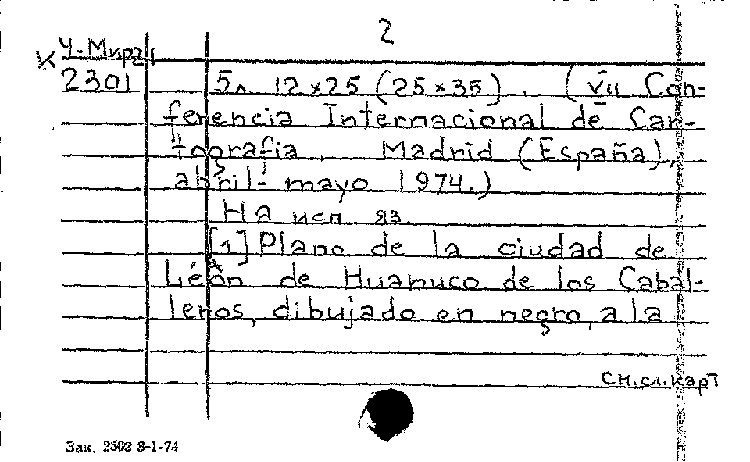 2
К Ч-Мирз
2301 5л. 12×25 (25×35). (VII Con-
ferencia Internacional de Car-
tografia, Madrid (España),
abril- mayo 1974.)
На исп. яз.
[1] Plano de la ciudad de
León de Huanuco de los Cabal-
leros, dibujado en negro, a la
См.сл.карт
Зак. 2502 8-1-74